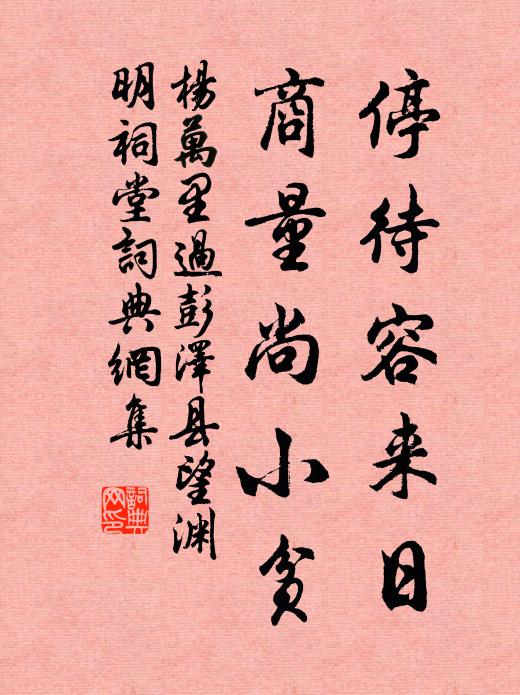 停待容来日
商量尚小貧
楊萬里過彭澤县望淵
明祠堂詞典網集
詞典
网印